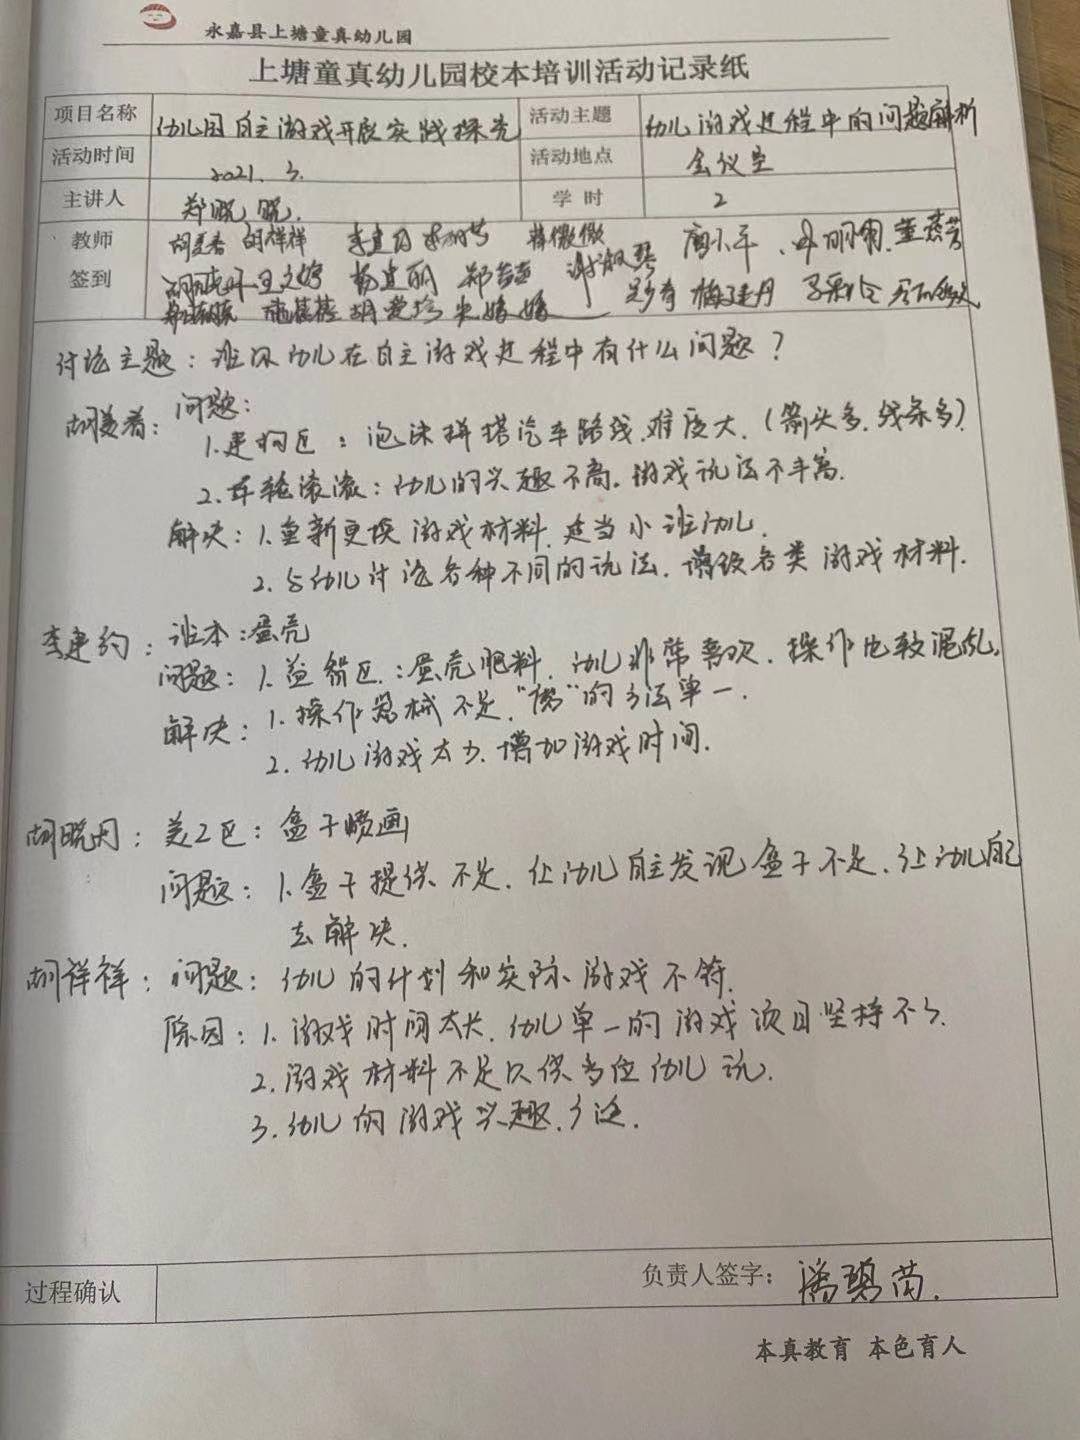 永嘉县上塘童真幼儿园
上塘童真幼儿园校本培训活动记录纸
项目名称 幼儿园自主游戏开展实践探究 活动主题 幼儿游戏过程中的问题解析
活动时间 2021.3. 活动地点 会议室
主讲人 郑晓晓. 学时 2
教师 胡美香 胡祥祥 李建约 蒋微微
签到 王文婷 杨建丽
胡爱珍
讨论主题：班级幼儿在自主游戏过程中有什么问题？
胡美香：问题：
1.建构区：泡沫拼搭汽车路线.难度大.(箭头多.线条多)
2.车轮滚滚：幼儿的兴趣不高。游戏玩法不丰富.
解决：1.重新更换游戏材料.适当小班幼儿.
2.与幼儿讨论各种不同的玩法.增设各类游戏材料.
李建约：班本：蛋壳
问题：1.益智区：蛋壳肥料.幼儿非常喜欢.操作比较混乱.
解决：1.操作器械不足."磨"的方法单一.
2.幼儿游戏太少.增加游戏时间.
胡晓丹：美工区：盒子喷画
问题：1.盒子提供不足.让幼儿自主发现盒子不足.让幼儿自己
去解决.
胡祥祥：问题：幼儿的计划和实际游戏不符.
原因：1.游戏时间太长.幼儿单一的游戏项目坚持不了.
2.游戏材料不足以供多位幼儿玩.
3.幼儿的游戏兴趣.
过程确认 负责人签字：潘碧茵.
本真教育 本色育人